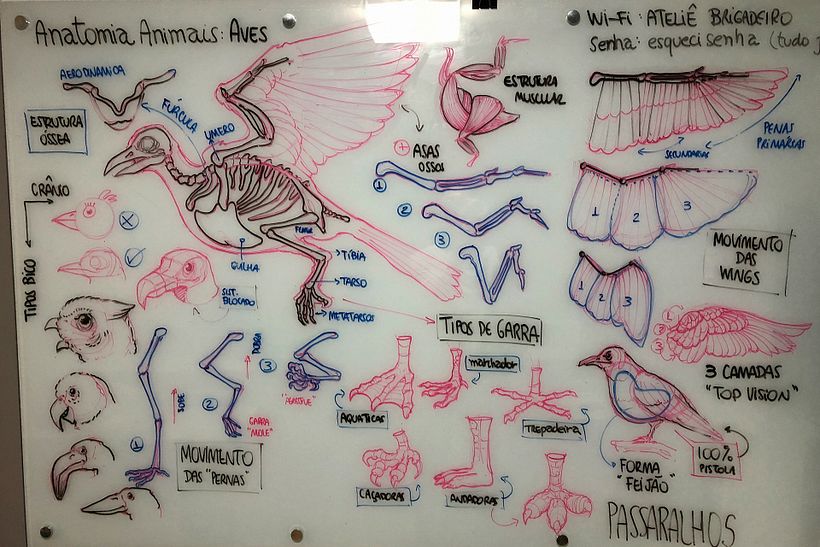 Anatomia Animais: AVES
Wi-Fi: ATELIÊ BRIGADEIRO
Senha: esqueci senha (tudo j
AERODINÂMICA
ESTRUTURA
ÓSSEA
FURÍCULA
ÚMERO
ESTRUTURA
MUSCULAR
PENAS
PRIMÁRIAS
SECUNDÁRIAS
+ ASAS
OSSOS
1
2
3
CRÂNIO
TIPOS BICO
FEMUR
QUILHA
TÍBIA
TARSO
METATARSOS
SIST.
BLOCADO
1
2
3
MOVIMENTO
DAS
WINGS
1
2
3
1
2
3
3 CAMADAS
"TOP VISION"
TIPOS DE GARRA
AQUÁTICAS
marchador
Trepadeira
CAÇADORAS
ANDADORAS
1
SOBE
2
DOBRA
3
GARRA
"MOLE"
MOVIMENTO
DAS "PERNAS"
FORMA
"FEIJÃO"
100%
PISTOLA
PASSARALHOS